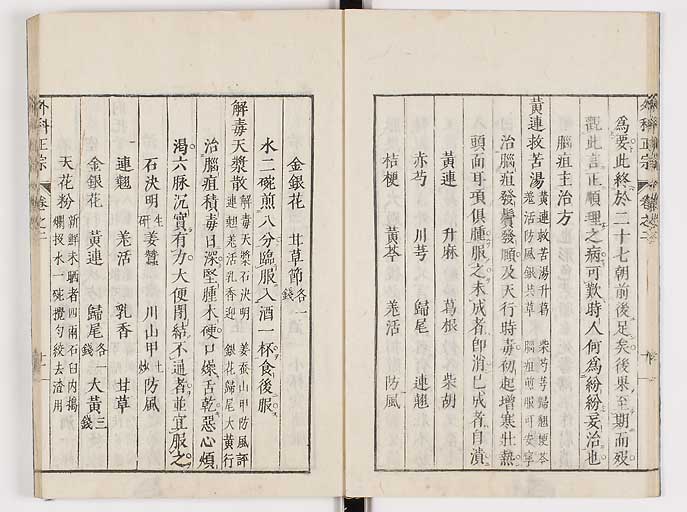 外科正宗 卷之二
爲要此終於二十七朝前後足矣後畢至期而歿
觀此言正順理之病可歎時人何爲紛紛妄治也
腦疽主治方
黃連救苦湯 黃連救苦湯升葛 柴芍芎歸翹梗芩
羌活防風銀甘草 腦疽煎服可安寧
治腦疽發鬢發頤及天行時毒初起增寒壯熱
頭面耳項俱腫服之未成者卽消已成者自潰
黃連 升麻 葛根 柴胡
赤芍 川芎 歸尾 連翹
桔梗 黃芩 羌活 防風
金銀花 甘草節各一錢
水二碗煎八分臨服入酒一杯食後服
解毒天漿散 解毒天漿石決明 姜蚕山甲防風評
連翹羌活乳香迎 銀花歸尾大黃行
治腦疽積毒日深堅腫木硬口燥舌乾惡心煩
渴六脉沉實有力大便閉結不通者並宜服之
石決明生研 姜蠶 川山甲炒 防風
連翹 羌活 乳香 甘草
金銀花 黃連 歸尾各一錢 大黃三錢
天花粉新鮮未晒者四兩石臼內搗
爛投水一碗攪勻絞去渣用
外科正宗 卷之二 十